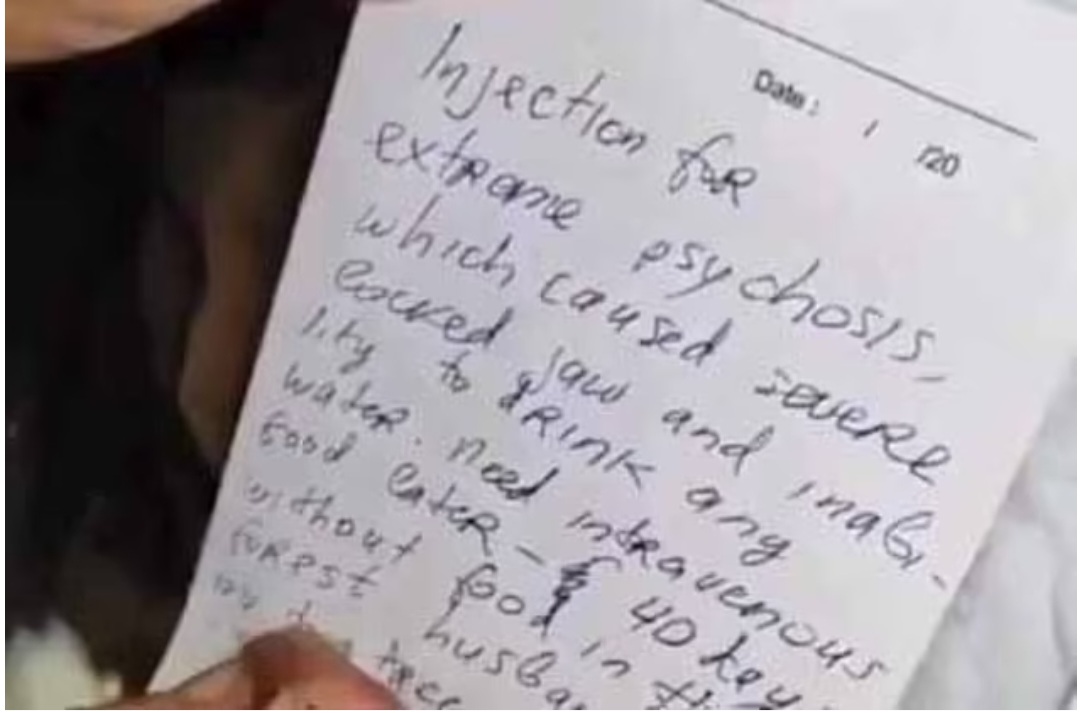 Date: / /20
Injection for
extreme psychosis,
which caused severe
locked jaw and inabi-
lity to drink any
water. need intravenous
food later - 40 day
without food in
forest husban